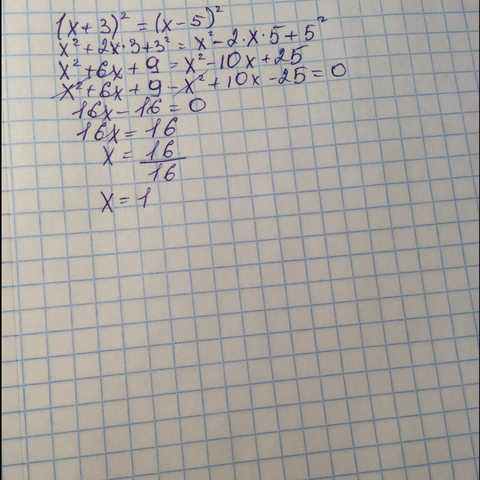 (x+3)² = (x-5)²
x² + 2x·3+3² = x² - 2·x·5+5²
x² + 6x + 9 = x² - 10x + 25
x² + 6x + 9 - x² + 10x - 25 = 0
16x - 16 = 0
16x = 16
x = 16/16
x = 1